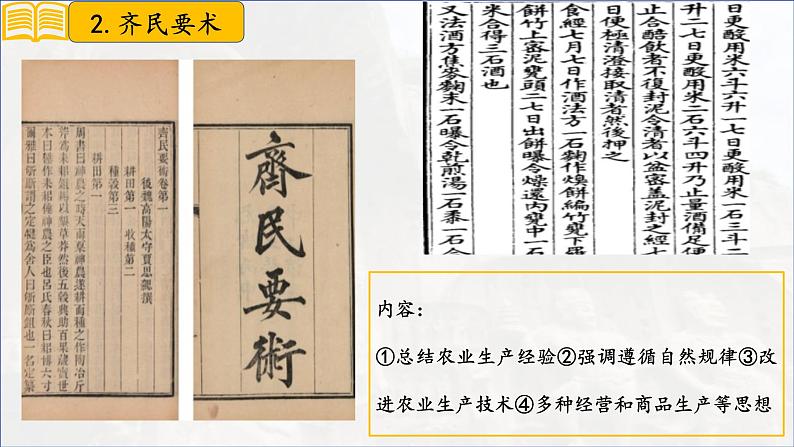 2. 齐民要术
齊民要術卷第一
後魏高陽太守賈思勰撰
耕田第一 收種第二
種穀第三
耕田第一
周書曰神農之時天雨粟神農遂耕而種之作陶冶斤
斧為耒耜鉏耨以墾草莽然後五穀興助百果藏實世
本曰倕作耒耜倕神農之臣也呂氏春秋曰耜博六寸
爾雅曰斪斸謂之定犍為舍人曰斪斸鉏也一名定纂
齊民要術
日更酘用米六斗六升一七日更酘用米一石三斗二
升二七日更酘用米二石六斗四升乃止量酒備足便
止合醅飲者不復封泥令清者以盆密蓋泥封之經七
日便極清澄接取清者然後押之
食經七月七日作酒法方一石麴作燠餅編竹甕下羅
餅竹上密泥甕頭二七日出餅曝令燥還內甕中一石
米合得三石酒也
又法酒方焦麥麴末一石曝令乾煎湯一石黍一石合
内容：
①总结农业生产经验②强调遵循自然规律③改
进农业生产技术④多种经营和商品生产等思想